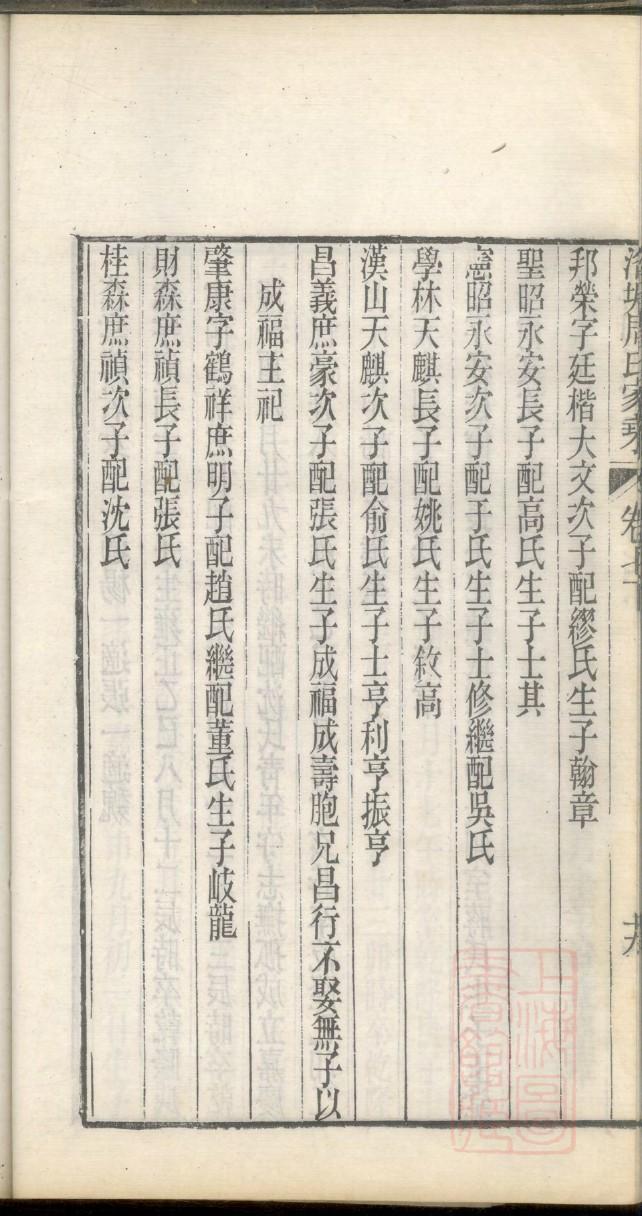 周氏家乘 卷七
邦榮字廷楷大文次子配繆氏生子翰章
聖昭永安長子配高氏生子士其
憲昭永安次子配于氏生子士修繼配吳氏
學林天麒長子配姚氏生子敘高
漢山天麒次子配俞氏生子士亨利亨振亨
昌義庶豪次子配張氏生子成福成壽胞兄昌行不娶無子以
成福主祀
肇康字鶴祥庶明子配趙氏繼配董氏生子岐龍
財森庶禎長子配張氏
桂森庶禎次子配沈氏
上海圖書館藏